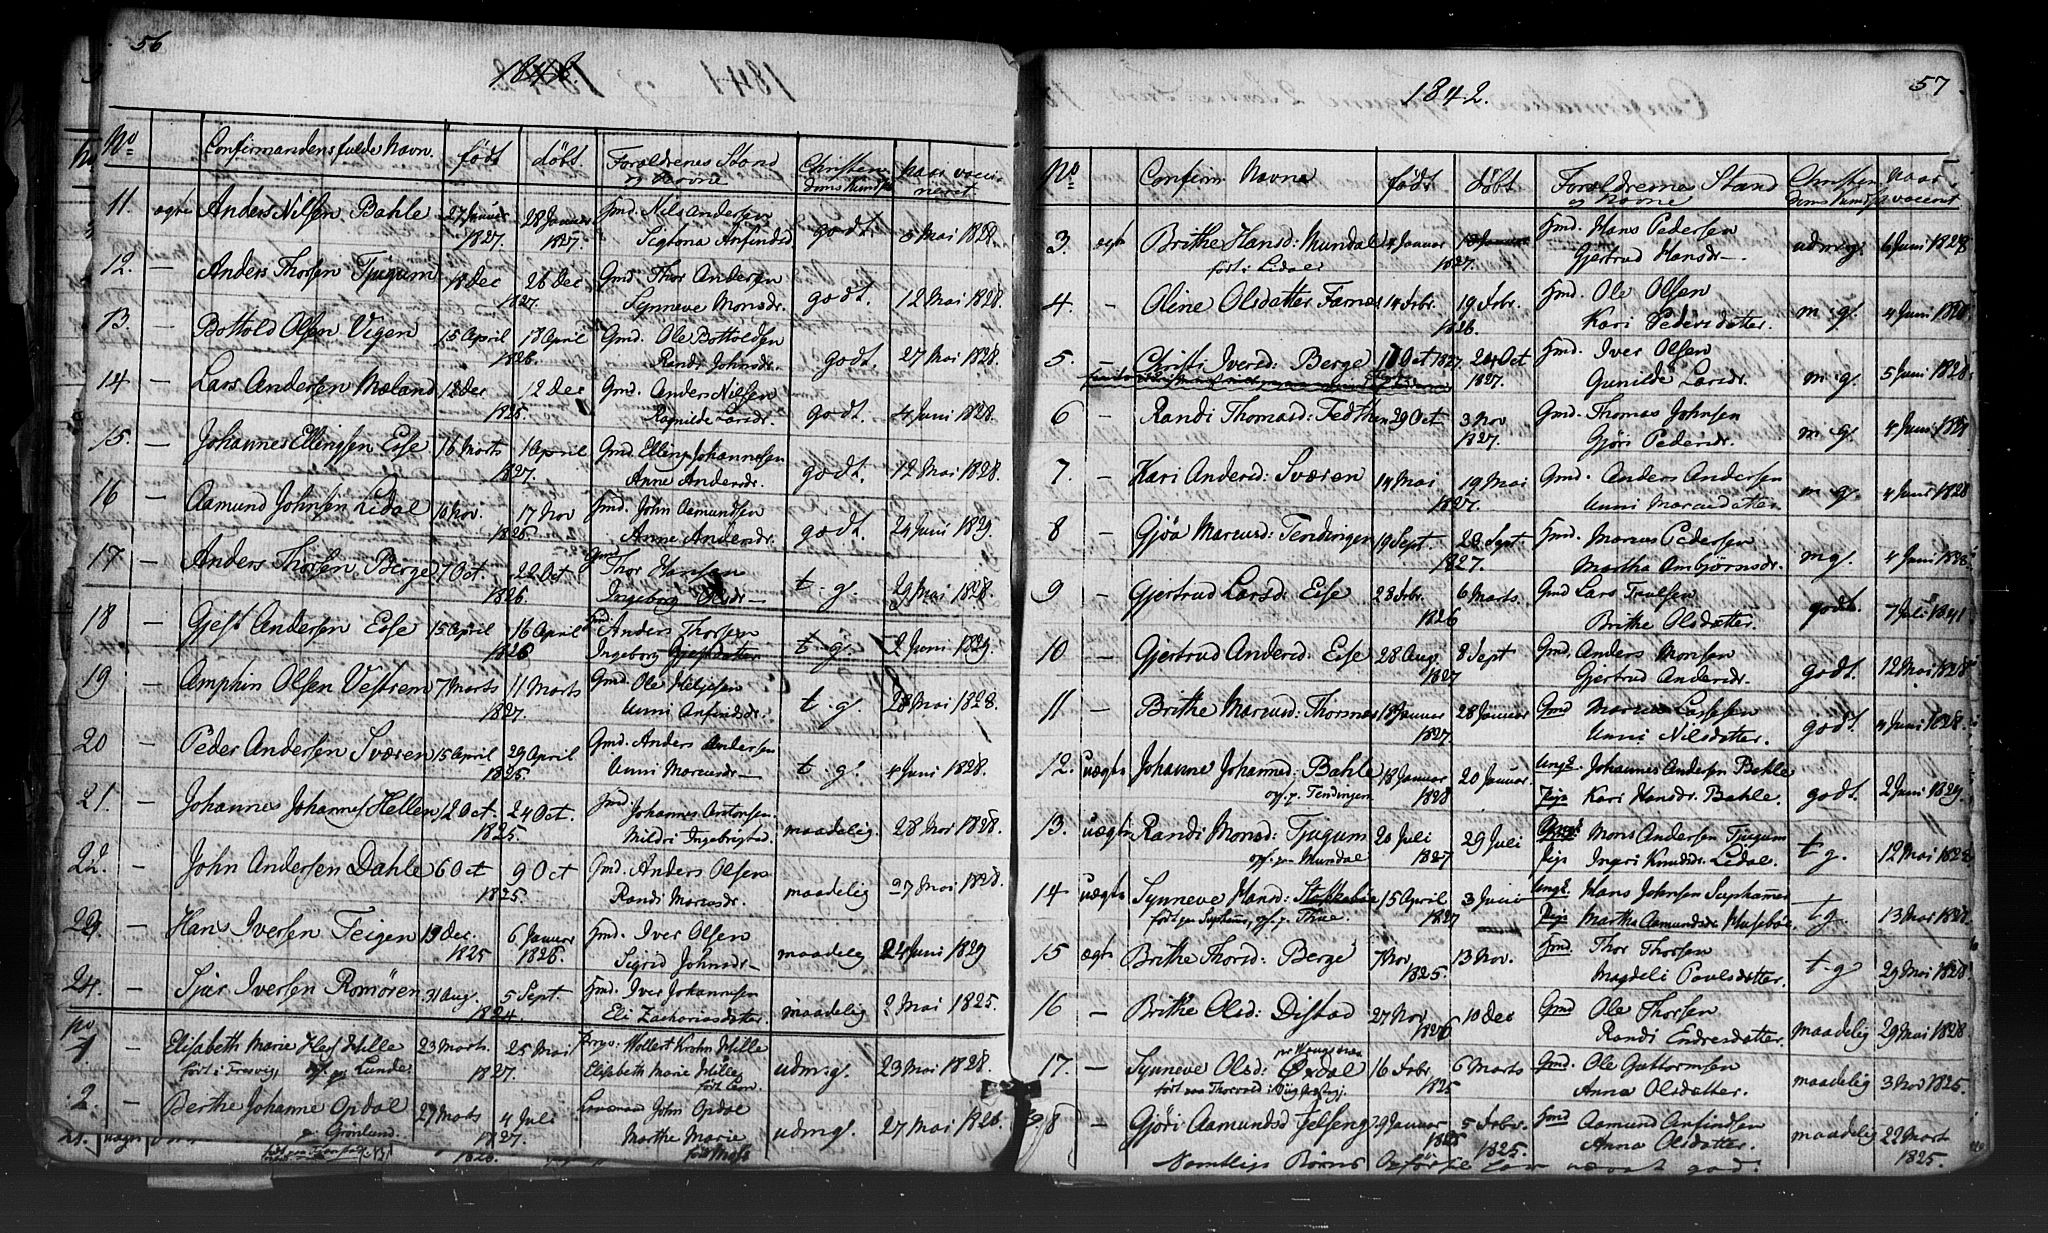 56
1842.
No
Confirmandens fulde Navn.
født
døbt
Forældrenes Stand og Navne
Christendoms Kundsk
naar vaccineret
11. ægte Anders Nilsen Bahle 27 Januar 1827. 28 Januar 1827. Gmd. Nils Andersen godt. 5 Mai 1828.
12. — Anders Thorsen Tjugum 18 Dec 26 Dec 1827. Gmd. Thor Andersen
Synneve Monsdr. godt. 12 Mai 1828.
13. — Bottold Olsen Vigen 15 April 17 April 1826. Gmd. Ole Bottoldsen
Randi Johnsdr. godt. 27 Mai 1828.
14 — Lars Andersen Mæland 12 Dec 1825. Gmd. Anders Nilsen
Ragnilde Larsdr. godt 4 Juni 1828.
15. — Johannes Ellingsen Ese 16 Marts 1 April 1827. Gmd. Elling Johannesen
Anne Andersdr. godt. 12 Mai 1828.
16 — Aamund Johnsen Lidal 10 Nov. 17 Nov 1826. Hmd. John Aamundsen
Anne Andersdr. godt. 24 Juni 1829.
17 — Anders Thorsen Berge 7 Oct. 22 Oct 1826 Gmd Thor Hansen
Ingeborg t. g. 29 Mai 1828.
18 — Gjest Andersen Ese 15 April 16 April 1826 Anders Thorsen
Ingeborg Gjestsdatter t. g. 9 Juni 1829
19 — Amphin Olsen Vestrem 7 Marts 11 Marts 1827. Gmd. Ole Heljesen
Unni Anfindsdr. t. g. 28 Mai 1828.
20 — Peder Andersen Sværen 15 April 29 April 1825. Gmd. Anders Andersen
Unni Marcusdr. t. g. 4 Juni 1828.
21. — Johannes Johannes. Hellen 12 Oct 24 Oct 1825. Hmd. Johannes
Mildri Ingebrigtsd maadelig. 28 1828.
22. — John Andersen Dahle 6 Oct 9 Oct 1825. Gmd. Anders Olsen
Randi Marcusdr. maadelig 27 Mai 1828.
23. — Hans Iversen Feigen 19 Dec. 1825 6 Januar 1826. Hmd. Iver Olsen
Sigrid Johnsdr. maadelig 24 Juni 1829
24. — Sjur Iversen Romøren 31 Aug. 5 Sept. 1824. Hmd. Iver Johannesen
Eli Zachariasdatter. maadelig 2 Mai 1825.
No
1 — Elisabeth Marie Hille 23 Marts. 25 Mai 1827. Wollert Krohn Hille
født i Fresvig, Lunde Elisabeth Marie Hille udm. g. 23 Mai 1828.
2. — Berthe Johanne Opdal 27 Marts 4 Juli 1827. Lensmand John Opdal
Grønlund. Marthe Marie udm g. 27 Mai 1828.
57
1842.
No
Confirm: Navne
født
døbt
Forældrenes Stand og Navne
Christendoms Kundsk
naar vaccinert
3. ægt Brithe Hansd: Mundal Januar 1827. Hmd. Hans Pedersen
født i Lidal Gjertrud Hansdr— udm g. 6 Juni 1828
4. — Oline Olsdatter Farnes 14 Febr. 19 Febr. 1826 Hmd. Ole Olsen
Kari Pedersdatter. m g. 4 Juni 1828
5. — Christi Iversd: Berge 17 Oct 1827 24 Oct 1827. Hmd. Iver Olsen
Gunilde Larsdr. m g. 5 Juni 1828
6 — Randi Thomasd: Fedthun 29 Oct 3 Nov 1827. Gmd. Thomas Johnsen
Gjøri Pedersdr. m g. 4 Juni 1828
7 — Kari Andersd: Sværen 14 Mai 19 Mai 1827. Gmd. Anders Andersen
Unni Marcusdatter m g. 4 Juni 1828
8 — Gjøa Marcusd: Tendingen 19 Sept. 20 Sept 1827. Hmd. Marcus Pedersen
Martha Ambjørnsdr. m g. 4 Juni 1828
9 — Gjertrud Larsd: Ese 28 Febr. 6 Marts. 1826 Gmd Lars Truelsen
Brithe Olsdatter. godt. 7 Juli 1841
10 — Gjertrud Andersd: Ese 28 Aug. 8 Sept 1827 Gmd. Anders Monsen
Gjertrud Andersdr. godt. 12 Mai 1828
11 — Brithe Marcusd: Thorsnes 18 Januar 28 Januar 1827. Gmd Marcus Lassesen
Unni Nilsdatter. godt 4 Juni 1828.
12. uægte Johanne Johannesd: Bahle 18 Januar 20 Januar. 1828 Ungk. Johannes Andersen Bahle
op. p. Tendingen Pige Kari Hansdr. Bahle. godt. 2 Juni 1829.
13. uægte Randi Monsd: Tjugum 20 Juli 29 Juli 1827 Mons Andersen Tjugum
opf. paa Mundal Pige Ingeri Knudsdr. Lidal. t g. 12 Mai 1828
14 uægte Synneve Hansd: 15 April 3 Juni 1827 Ungk. Hans Johnsen Suphamer
født paa Suphamer, opf. p. Thue. Pige Martha Aamundsdr. t g. 13 Mai 1828.
15 ægte Brithe Thorsd: Berge 7 Nov. 13 Nov. 1825. Hmd. Thor Thorsen
Magdeli Povelsdatter. t-g 29 Mai 1828
16 — Brithe Olsd: Distad 27 Nov 10 Dec 1826 Gmd Ole Thorsen
Randi Endresdatter. maadelig 29 Mai 1828
17. — Synneve Olsd: Ørdal 16 Febr. 6 Marts 1825 Gmd. Ole Guttormsen
Anna Olsdatter. maadelig 3 Nov 1825.
18 — Gjøri Aamundsd Felseng 29 Januar 5 Febr. 1825. Hmd Aamund Anfindsen
Anna Olsdatter. maadelig 22 Marts 1825.
Samtlige Børns Opførsel har været god.